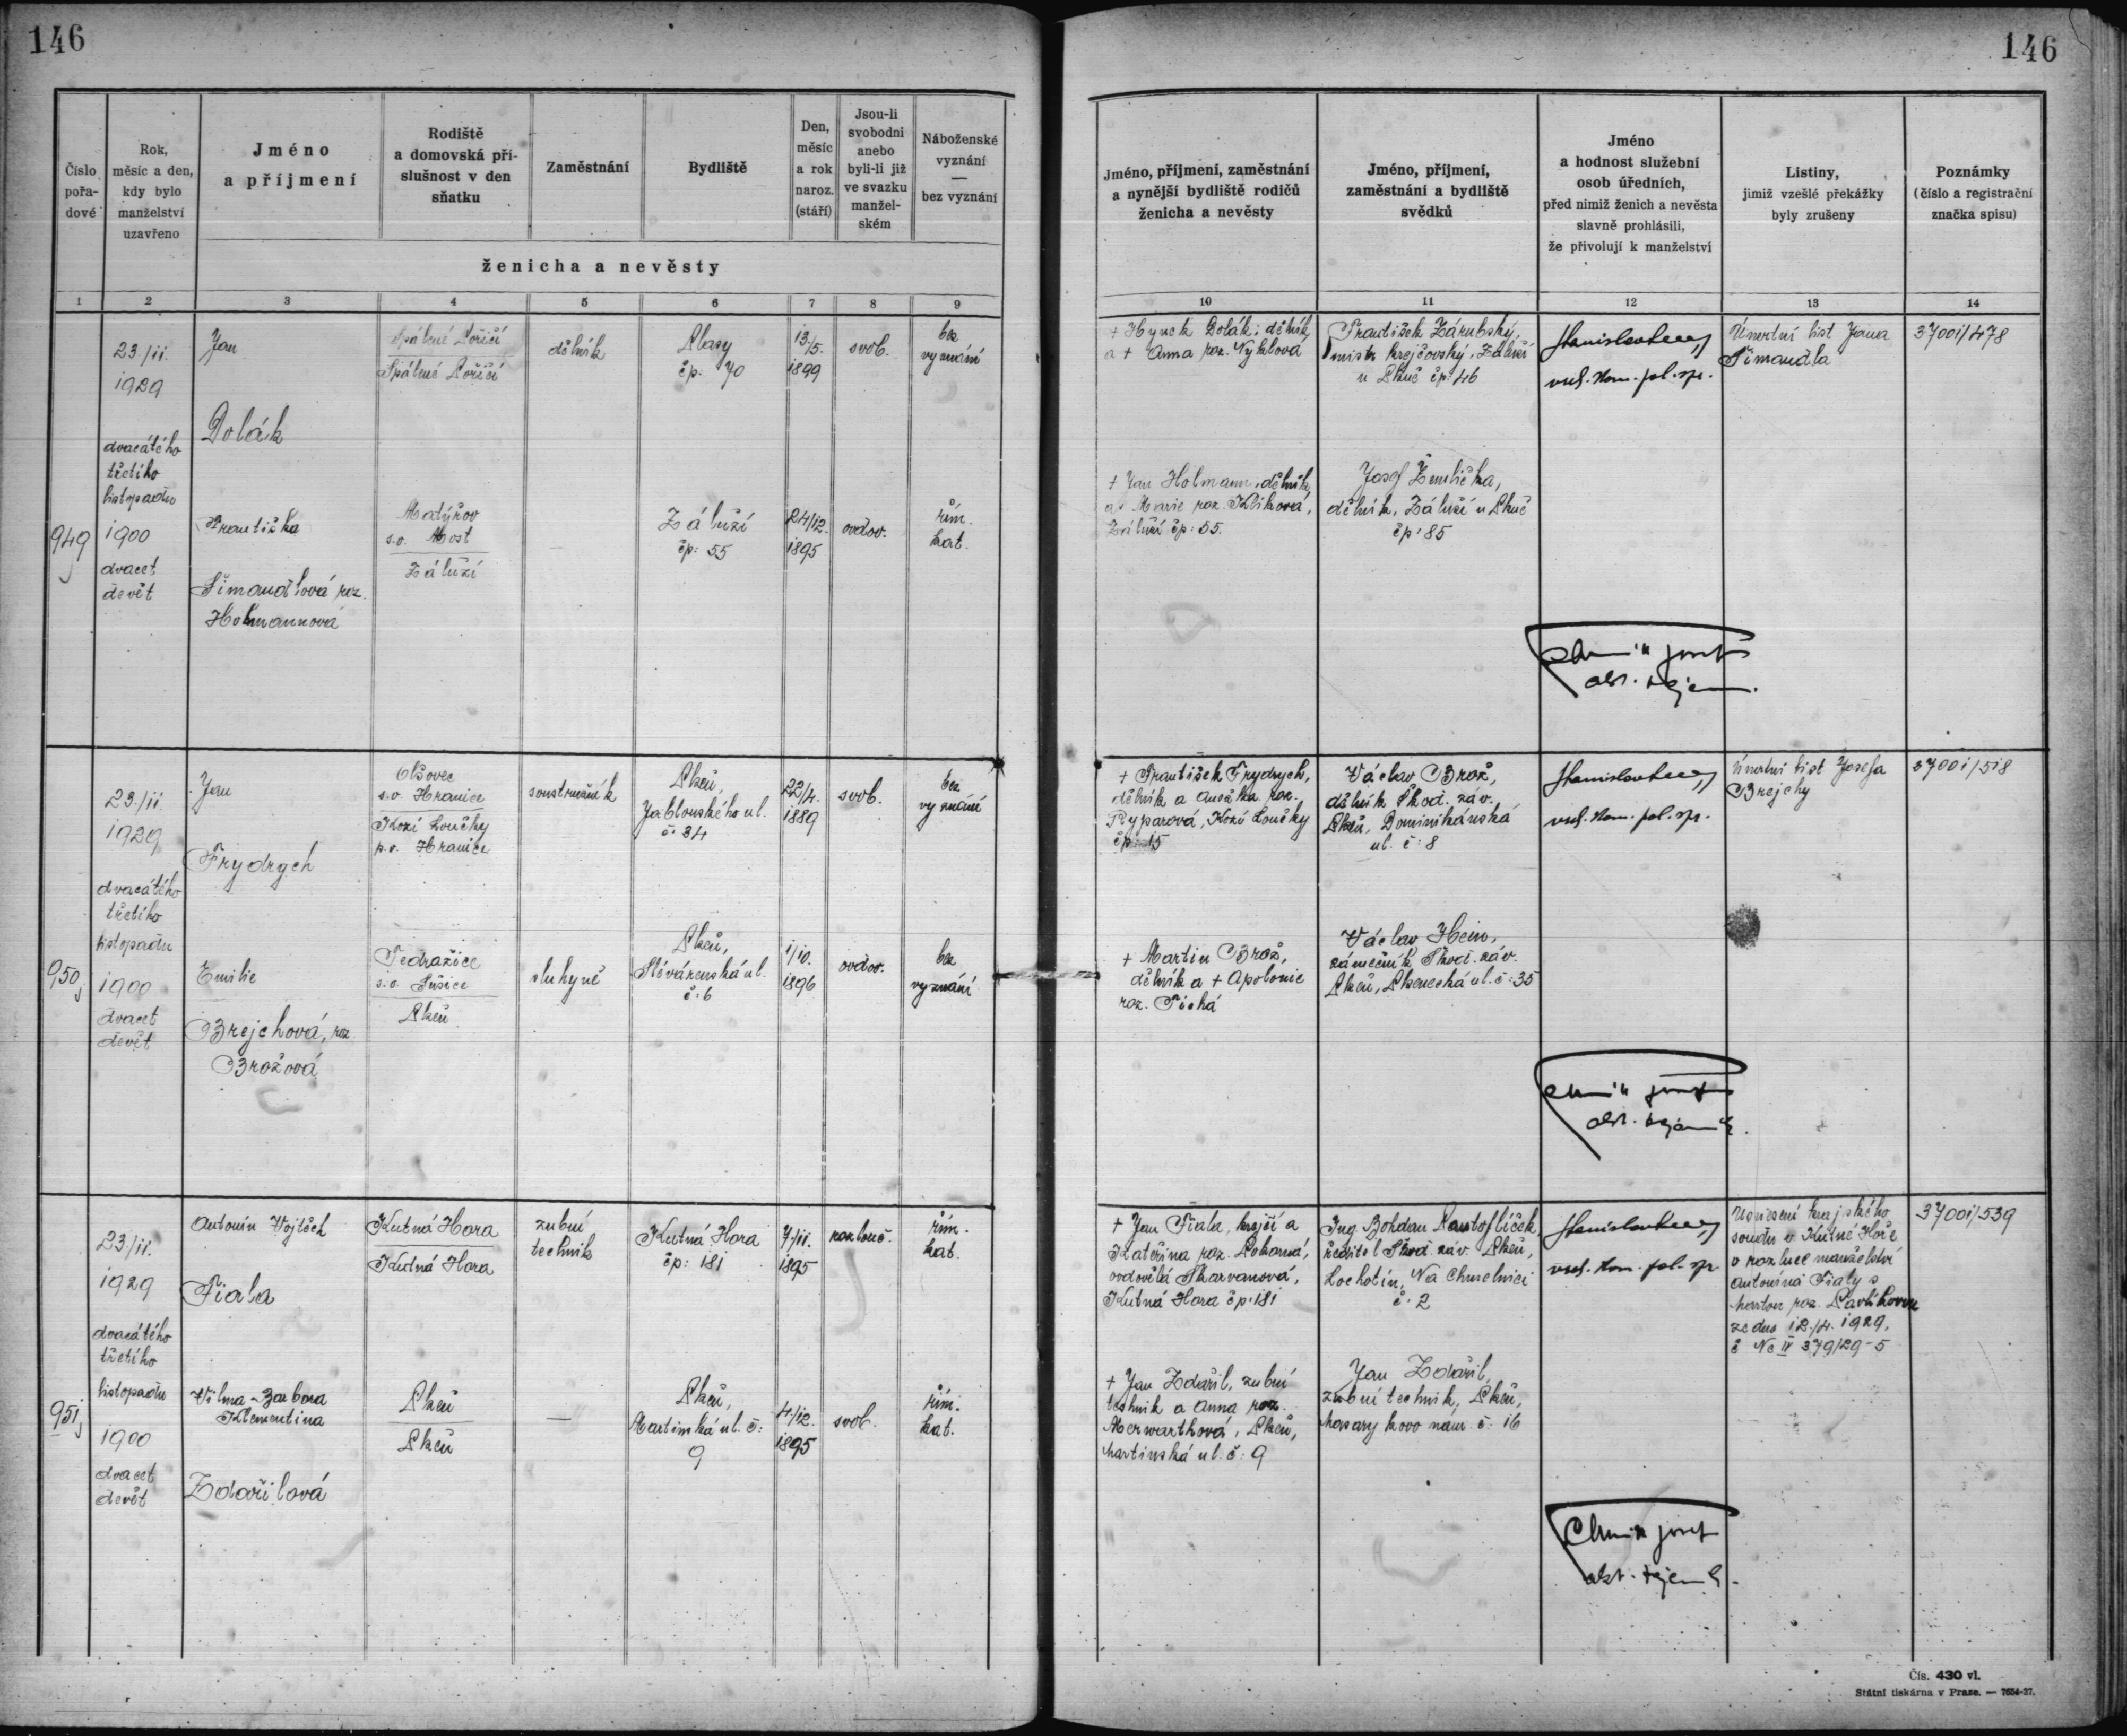 146
146
Číslo
pořa-
dové
Rok,
měsíc a den,
kdy bylo
manželství
uzavřeno
Jméno
a příjmení
Rodiště
a domovská pří-
slušnost v den
sňatku
Zaměstnání
Bydliště
Den,
měsíc
a rok
naroz.
(stáří)
Jsou-li
svobodni
anebo
byli-li již
ve svazku
manžel-
ském
Náboženské
vyznání
—
bez vyznání
ženicha a nevěsty
Jméno, příjmení, zaměstnání
a nynější bydliště rodičů
ženicha a nevěsty
Jméno, příjmení,
zaměstnání a bydliště
svědků
Jméno
a hodnost služební
osob úředních,
před nimiž ženich a nevěsta
slavně prohlásili,
že přivolují k manželství
Listiny,
jimiž vzešlé překážky
byly zrušeny
Poznámky
(číslo a registrační
značka spisu)
1 2 3 4 5 6 7 8 9
10 11 12 13 14
949
23./11.
1929
dvacátého
třetího
listopadu
1900
dvacet
devět
Jan
Dolák
Spálené Poříčí
Spálené Poříčí
dělník
Plasy
čp: 70
13/5.
1899
svob.
bez
vyznání
+ Hynek Dolák, dělník
a + Anna roz. Nyklová
František Zárubský,
mistr krejčovský, Záluží
u Plzně čp: 46
vrch. kom. pol. spr.
Úmrtní list Jana
Šimandla
37001/478
Františka
Šimandlová roz.
Holmannová
s.o. Most
Záluží
—
Záluží
čp: 55
24/12.
1895
ovdov.
řím.
kat.
+ Jan Holmann, dělník
a Marie roz.
Záluží čp: 55.
Josef Žemlička,
dělník, Záluží u Plzně
čp: 85
Josef
950
23./11.
1929
dvacátého
třetího
listopadu
1900
dvacet
devět
Jan
Frydrych
Olšovec
s.o. Hranice
Kozí Loučky
p.o. Hranice
soustružník
Plzeň,
Jablonského ul.
č: 34
22/4.
1889
svob.
bez
vyznání
+ František Frydrych,
dělník a Anežka roz.
Ryparová, Kozí Loučky
čp: 15
Václav Brož,
dělník Škod. záv.
Plzeň, Dominikánská
ul. č: 8
vrch. kom. pol. spr.
Úmrtní list Josefa
Brejchy
37001/518
Emilie
Brejchová, roz.
Brožová
Tedražice
s.o. Sušice
Plzeň
služyně
Plzeň,
Slévárenská ul.
č: 6
1/10.
1896
ovdov.
bez
vyznání
+ Martin Brož,
dělník a + Apolonie
roz. Tichá
Václav Hein,
zámečník Škod. záv.
Plzeň, Plzenecká ul. č: 35
Josef
951
23./11.
1929
dvacátého
třetího
listopadu
1900
dvacet
devět
Antonín Vojtěch
Fiala
Kutná Hora
Kutná Hora
zubní
technik
Kutná Hora
čp: 181
7/11.
1895
rozlouč.
řím.
kat.
+ Jan Fiala, krejčí a
Kateřina roz. Pokorná,
ovdovělá Skarvanová,
Kutná Hora čp: 181
Ing. Bohdan Kantoflíček
ředitel Škod. záv. Plzeň,
Lochotín, Na Chmelnici
č: 2
vrch. kom. pol. spr.
Usnesení krajského
soudu v Kutné Hoře
o rozluce manželství
Antonína Fialy s
roz. Pavlíkovou
ze dne 12./4. 1929,
č Nc II 379/29-5
37001/539
Vilma-Barbora
Klementina
Zdařilová
Plzeň
Plzeň
—
Plzeň,
Martinská ul. č:
9
4/12.
1895
svob.
řím.
kat.
+ Jan Zdařil, zubní
technik a Anna roz.
Merwarthová, Plzeň,
Martinská ul. č: 9
Jan Zdařil,
zubní technik, Plzeň,
Masarykovo nám. č: 16
Josef
Čís. 430 vl.
Státní tiskárna v Praze. — 7654-27.